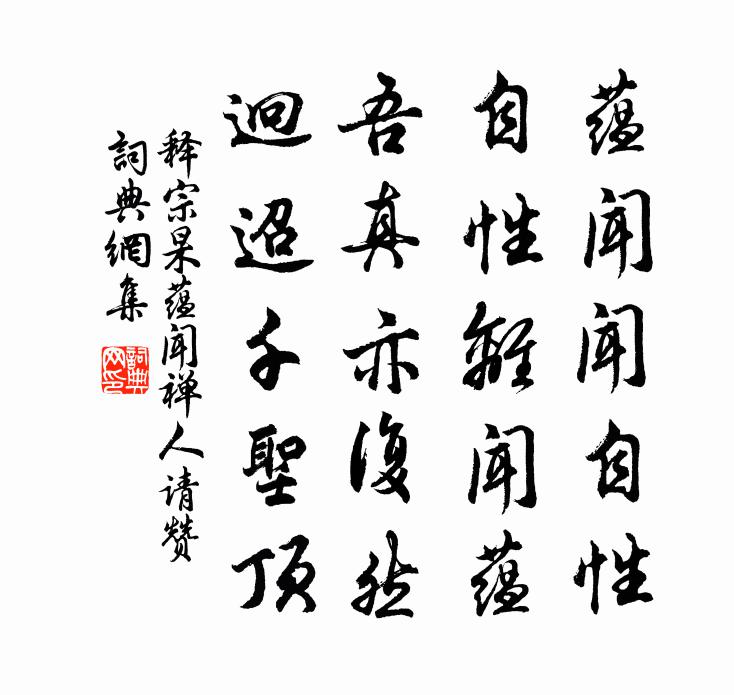 蕴闻闻自性
自性離闻蕴
吾真亦復然
迥迢千聖顶
释宗杲蕴闻禅人请赞
詞典網集
詞典网印